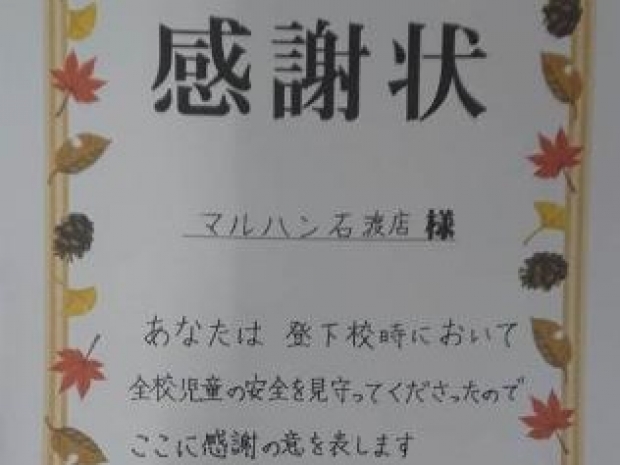 感謝状
マルハン石渡店 様
あなたは 登下校時において
全校児童の安全を見守ってくださったので
ここに感謝の意を表します